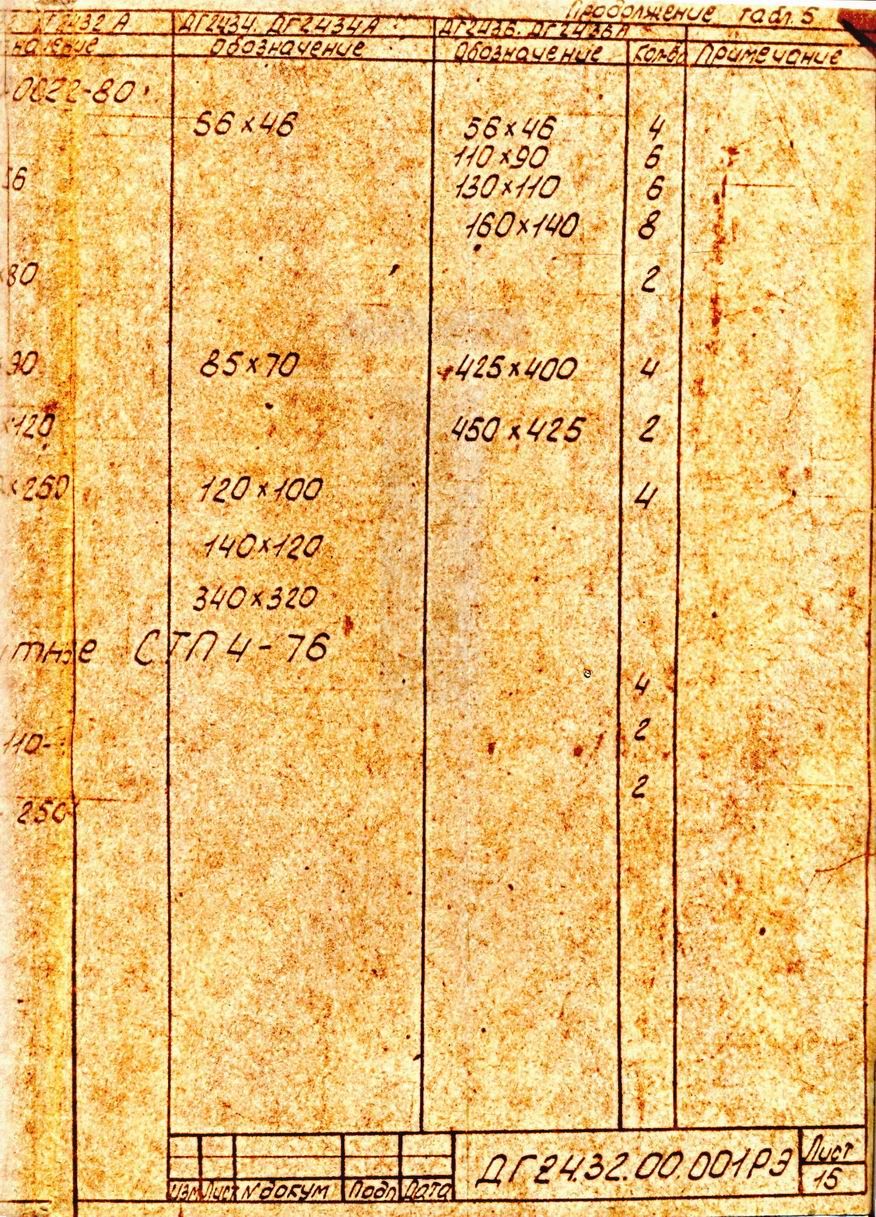 Продолжение табл. 5
ДГ2432 А ДГ2434. ДГ2434А ДГ2436. ДГ2436А
начение Обозначение Обозначение Кол-во Примечание
-0022-80
56×46 56×46 4
110×90 6
36 130×110 6
160×140 8
×80 2
90 85×70 425×400 4
×120 450×425 2
×250 120×100 4
140×120
340×320
тные СТП 4-76
4
110- 2
250 2
ДГ2432.00.001РЭ Лист
15
Изм Лист № докум Подп Дата